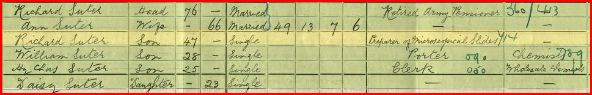 Richard Suter Head 76 – Married Retired Army Pensioner 360/443
Ann Suter Wife – 66 Married 49 13 7 6 –
Richard Suter Son 47 – Single Preparer of Microscopical Slides 414
William Suter Son 28 – Single Porter 090 Chemist
Hy Chas Suter Son 25 – Single Clerk 030 Wholesale
Daisy Suter Daughter – 23 Single – –